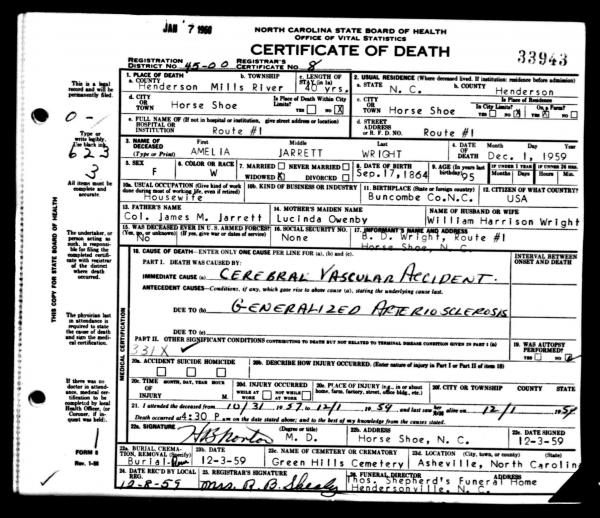 JAN 7 1960
NORTH CAROLINA STATE BOARD OF HEALTH
OFFICE OF VITAL STATISTICS
CERTIFICATE OF DEATH
33943
REGISTRATION DISTRICT NO. 45-00 REGISTRAR'S CERTIFICATE NO. 8
1. PLACE OF DEATH
a. COUNTY Henderson
b. TOWNSHIP Mills River
c. LENGTH OF STAY (in 1a) 40 yrs.
2. USUAL RESIDENCE (Where deceased lived. If institution: residence before admission)
a. STATE N. C.
b. COUNTY Henderson
d. CITY OR TOWN Horse Shoe
Is Place of Death Within City Limits? YES NO X
c. CITY OR TOWN Horse Shoe
Is Place of Residence In City Limits? On a Farm?
e. FULL NAME OF (If not in hospital or institution, give street address or location) HOSPITAL OR INSTITUTION Route #1
d. STREET ADDRESS or R. F. D. NO. Route #1
3. NAME OF DECEASED (Type or Print)
First AMELIA
Middle JARRETT
Last WRIGHT
4. DATE OF DEATH Month Day Year Dec. 1, 1959
5. SEX F
6. COLOR OR RACE W
7. MARRIED NEVER MARRIED WIDOWED X DIVORCED
8. DATE OF BIRTH Sep.17,1864
9. AGE (In years last birthday) 95
10a. USUAL OCCUPATION (Give kind of work done during most of working life, even if retired) Housewife
10b. KIND OF BUSINESS OR INDUSTRY
11. BIRTHPLACE (State or foreign country) Buncombe Co.N.C.
12. CITIZEN OF WHAT COUNTRY? USA
13. FATHER'S NAME Col. James M. Jarrett
14. MOTHER'S MAIDEN NAME Lucinda Owenby
NAME OF HUSBAND OR WIFE William Harrison Wright
15. WAS DECEASED EVER IN U.S. ARMED FORCES? (Yes, no, or unknown) (If yes, give war or dates of service) No
16. SOCIAL SECURITY NO. None
17. INFORMANT'S NAME AND ADDRESS B. D. Wright, Route #1
Horse Shoe, N. C.
18. CAUSE OF DEATH—ENTER ONLY ONE CAUSE PER LINE FOR (a), (b), and (c).
INTERVAL BETWEEN ONSET AND DEATH
PART I. DEATH WAS CAUSED BY:
IMMEDIATE CAUSE (a) CEREBRAL VASCULAR ACCIDENT.
ANTECEDENT CAUSES—Conditions, if any, which gave rise to above cause (a), stating the underlying cause last.
DUE TO (b) GENERALIZED ARTERIOSCLEROSIS
DUE TO (c)
PART II. OTHER SIGNIFICANT CONDITIONS CONTRIBUTING TO DEATH BUT NOT RELATED TO TERMINAL DISEASE CONDITION GIVEN IN PART I (a)
331X
19. WAS AUTOPSY PERFORMED? YES NO
20a. ACCIDENT SUICIDE HOMICIDE
20b. DESCRIBE HOW INJURY OCCURRED. (Enter nature of injury in Part I or Part II of item 18)
20c. TIME OF INJURY MONTH, DAY, YEAR HOUR M.
20d. INJURY OCCURRED WHILE AT WORK NOT WHILE AT WORK
20e. PLACE OF INJURY (e.g., in or about home, farm, factory, street, office bldg., etc.)
20f. CITY OR TOWNSHIP COUNTY STATE
21. I attended the deceased from 10/31 1957 to 12/1 1959 and last saw her alive on 12/1 1959
Death occurred at 4:30 P.m on the date stated above; and to the best of my knowledge from the causes stated.
22a. SIGNATURE (Degree or title) M. D.
22b. ADDRESS Horse Shoe, N. C.
22c. DATE SIGNED 12-3-59
23a. BURIAL, CREMATION, REMOVAL (Specify) Burial
23b. DATE 12-3-59
23c. NAME OF CEMETERY OR CREMATORY Green Hills Cemetery
23d. LOCATION (City, town, or county) (State) Asheville, North Carolina
24. DATE REC'D BY LOCAL REG. 12-8-59
25. REGISTRAR'S SIGNATURE Mrs. R. B. Shealy
26. FUNERAL DIRECTOR ADDRESS Thos. Shepherd's Funeral Home
Hendersonville, N. C.
This is a legal record and will be permanently filed.
0-
Type or write legibly. Use black ink
623
3
All items must be complete and accurate.
THIS COPY FOR STATE BOARD OF HEALTH
The undertaker, or person acting as such, is responsible for filing the completed certificate with registrar of the district where death occurred.
The physician last in attendance is required to state the cause of death and sign the medical certification.
MEDICAL CERTIFICATION
If there was no doctor in attendance, medical certification to be completed by local Health Officer, (or Coroner, if inquest was held).
1
FORM 8
Rev. 1-56